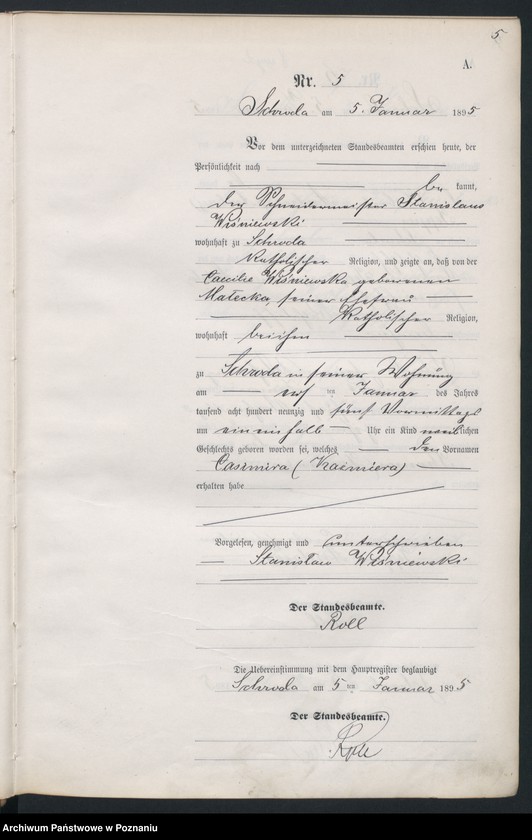 5
A.
Nr. 5
Schroda am 5. Januar 1895
Vor dem unterzeichneten Standesbeamten erschien heute, der
Persönlichkeit nach
be kannt,
der Schneidermeister Stanislaus
Wiśniewski
wohnhaft zu Schroda
katholischer Religion, und zeigte an, daß von der
Caecilie Wiśniewska geborenen
Małecka, seiner Ehefrau
katholischer Religion,
wohnhaft bei ihm
zu Schroda in seiner Wohnung
am ten Januar des Jahres
tausend acht hundert neunzig und fünf Vormittags
um ein einhalb Uhr ein Kind weiblichen
Geschlechts geboren worden sei, welches den Vornamen
Casimira (Kazimiera)
erhalten habe
Vorgelesen, genehmigt und unterschrieben
Stanisław Wiśniewski
Der Standesbeamte.
Roll
Die Uebereinstimmung mit dem Hauptregister beglaubigt
Schroda am 5 ten Januar 1895
Der Standesbeamte.
Roll
Archiwum Państwowe w Poznaniu